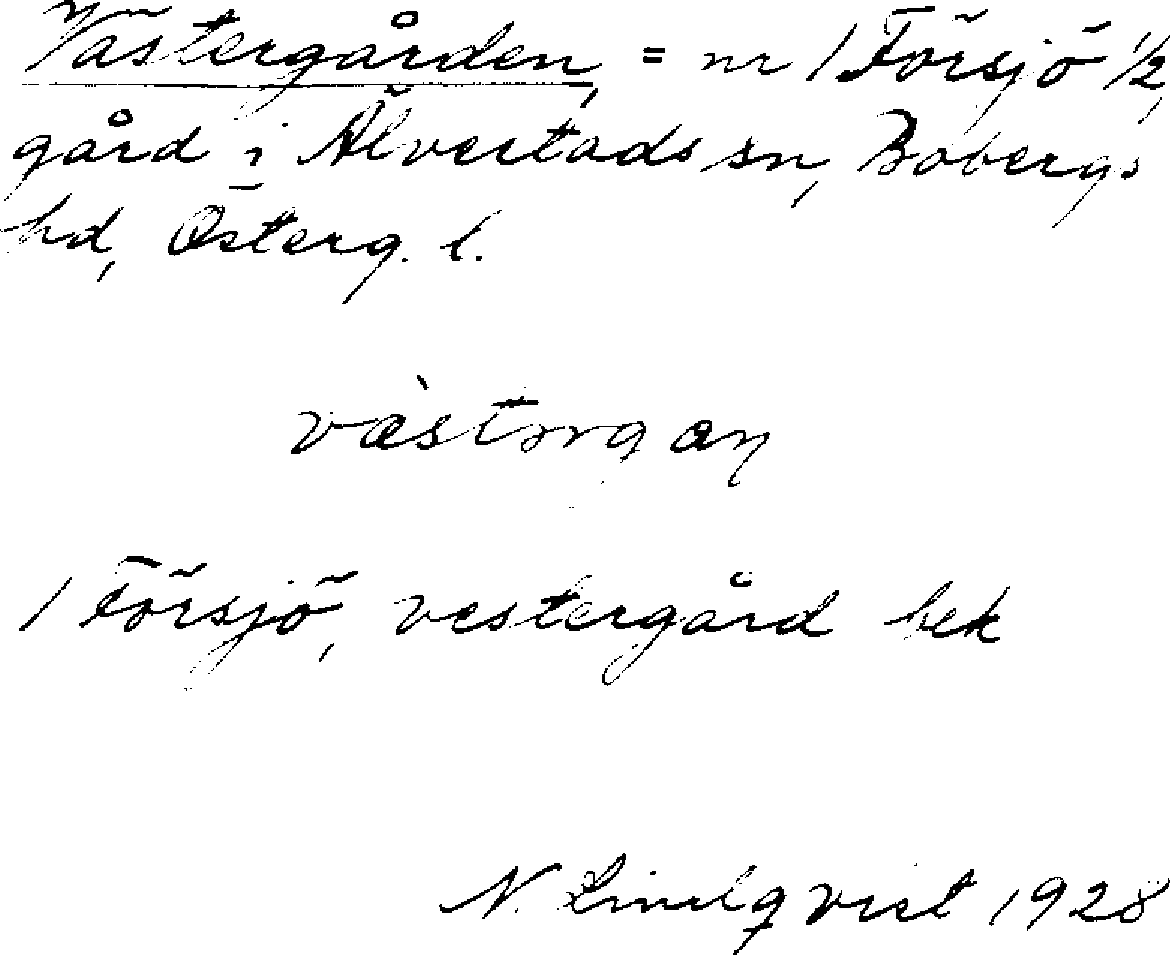 Västergården, = nr 1 Försjö ½,
gård i Älvestads sn, Bobergs
hd, Österg. l.
1 Försjö, vestergård bek
N. Lindqvist 1928